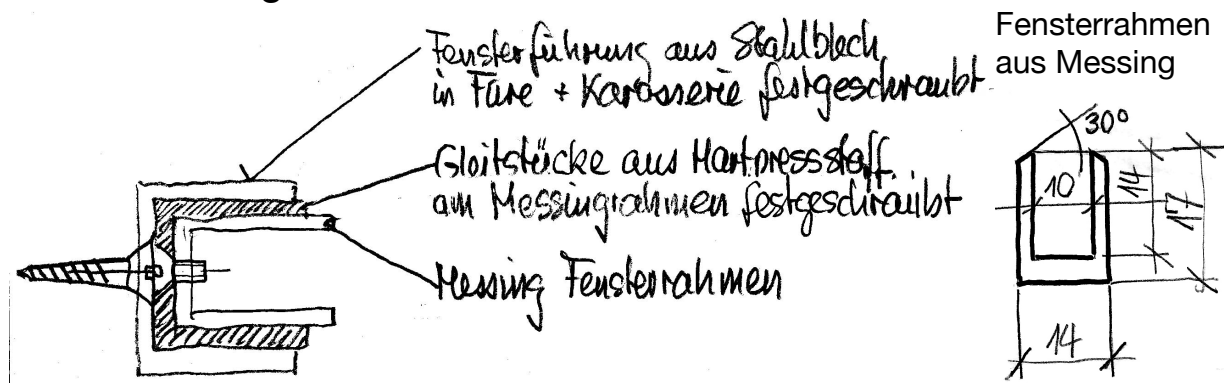 Fensterführung aus Stahlblech
in Türe + Karosserie festgeschraubt
Gleitstücke aus Hartpressstoff
am Messingrahmen festgeschraubt
Messing Fensterrahmen
Fensterrahmen
aus Messing
30°
10
14
17
14